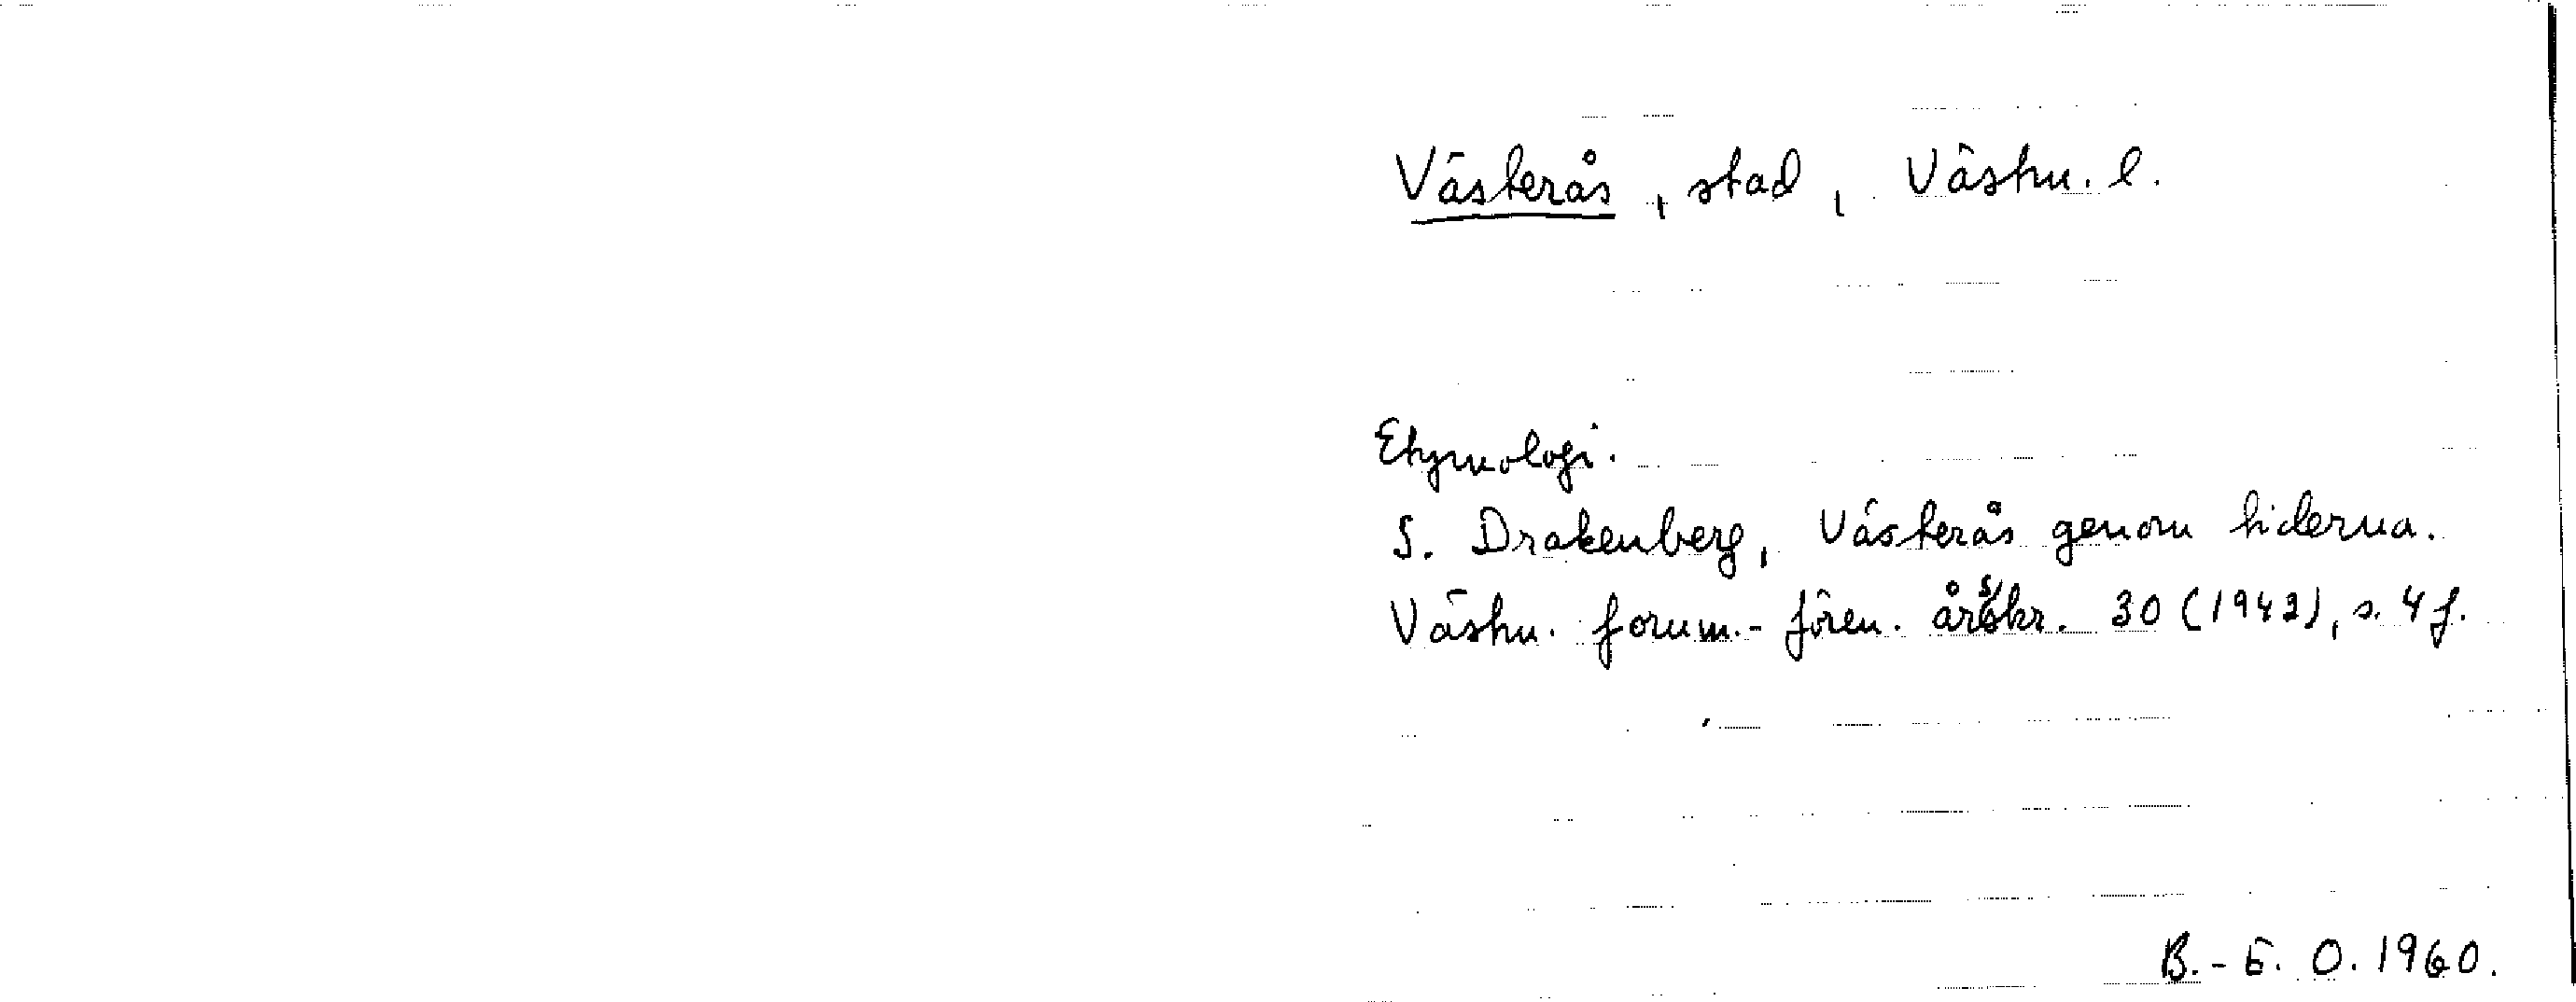 Västerås, stad, Västm. l.
Etymologi.
S. Drakenberg, Västerås genom tiderna.
Västm. fornm.-fören. årsskr. 30 (1942), s. 4 f.
B.-E. O. 1960.